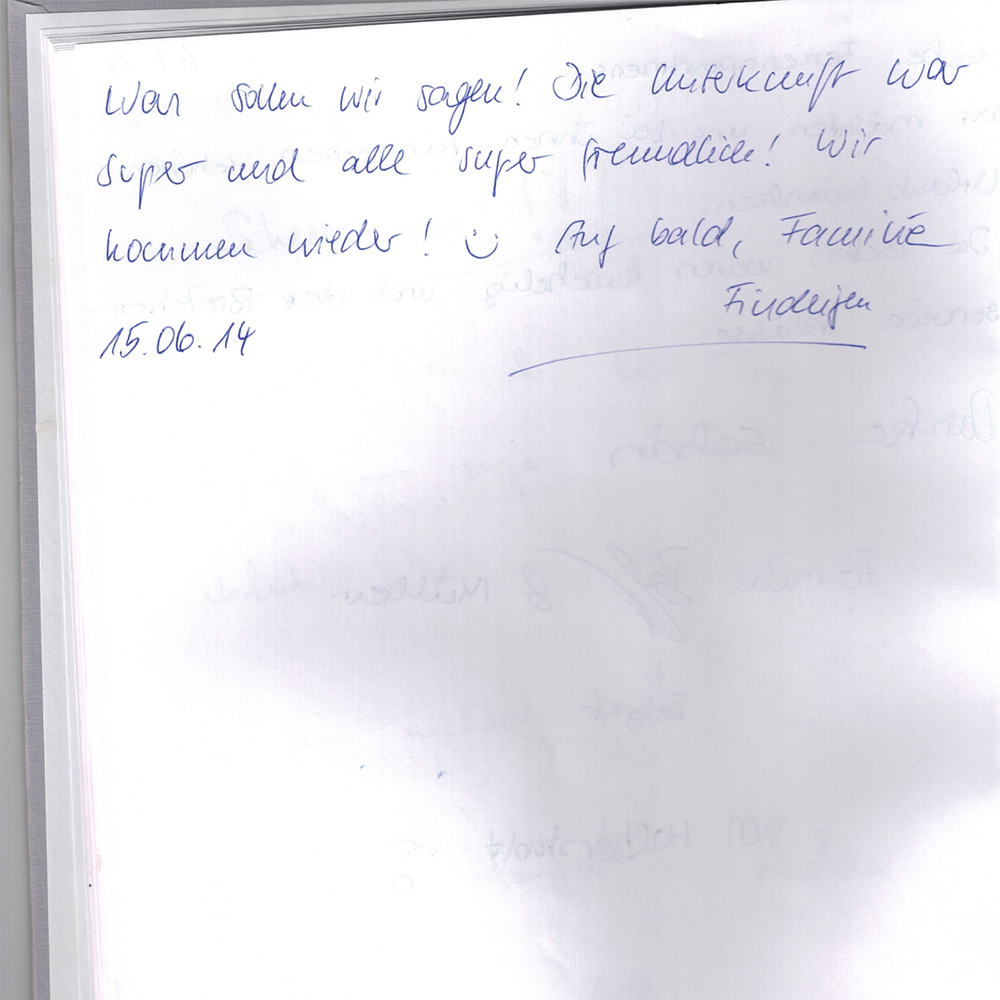 Was sollen wir sagen! Die Unterkunft war
super und alle super freundlich! Wir
kommen wieder! :) Auf bald, Familie
15.06.14